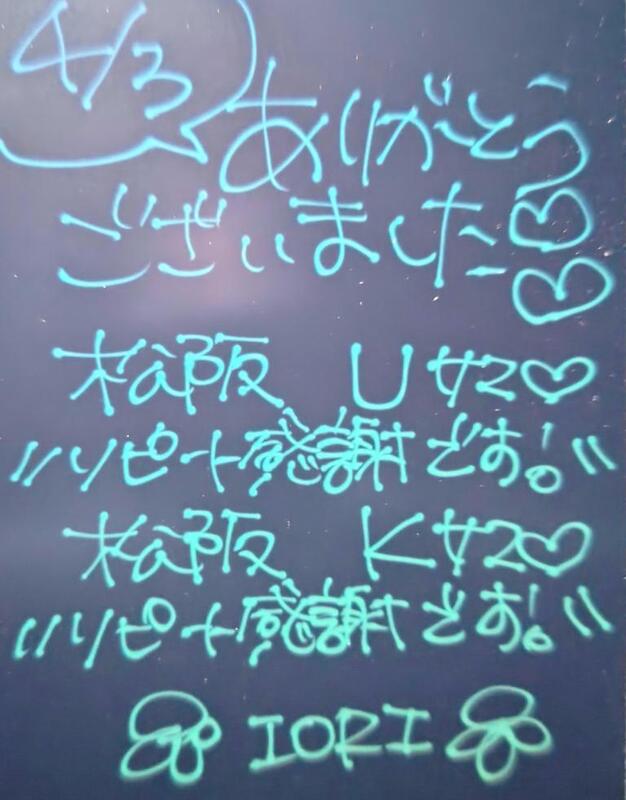 4/3
ありがとう
ございました♡♡
松阪 Uサマ♡
"リピート感謝です!"
松阪 Kサマ♡
"リピート感謝です!"
IORI